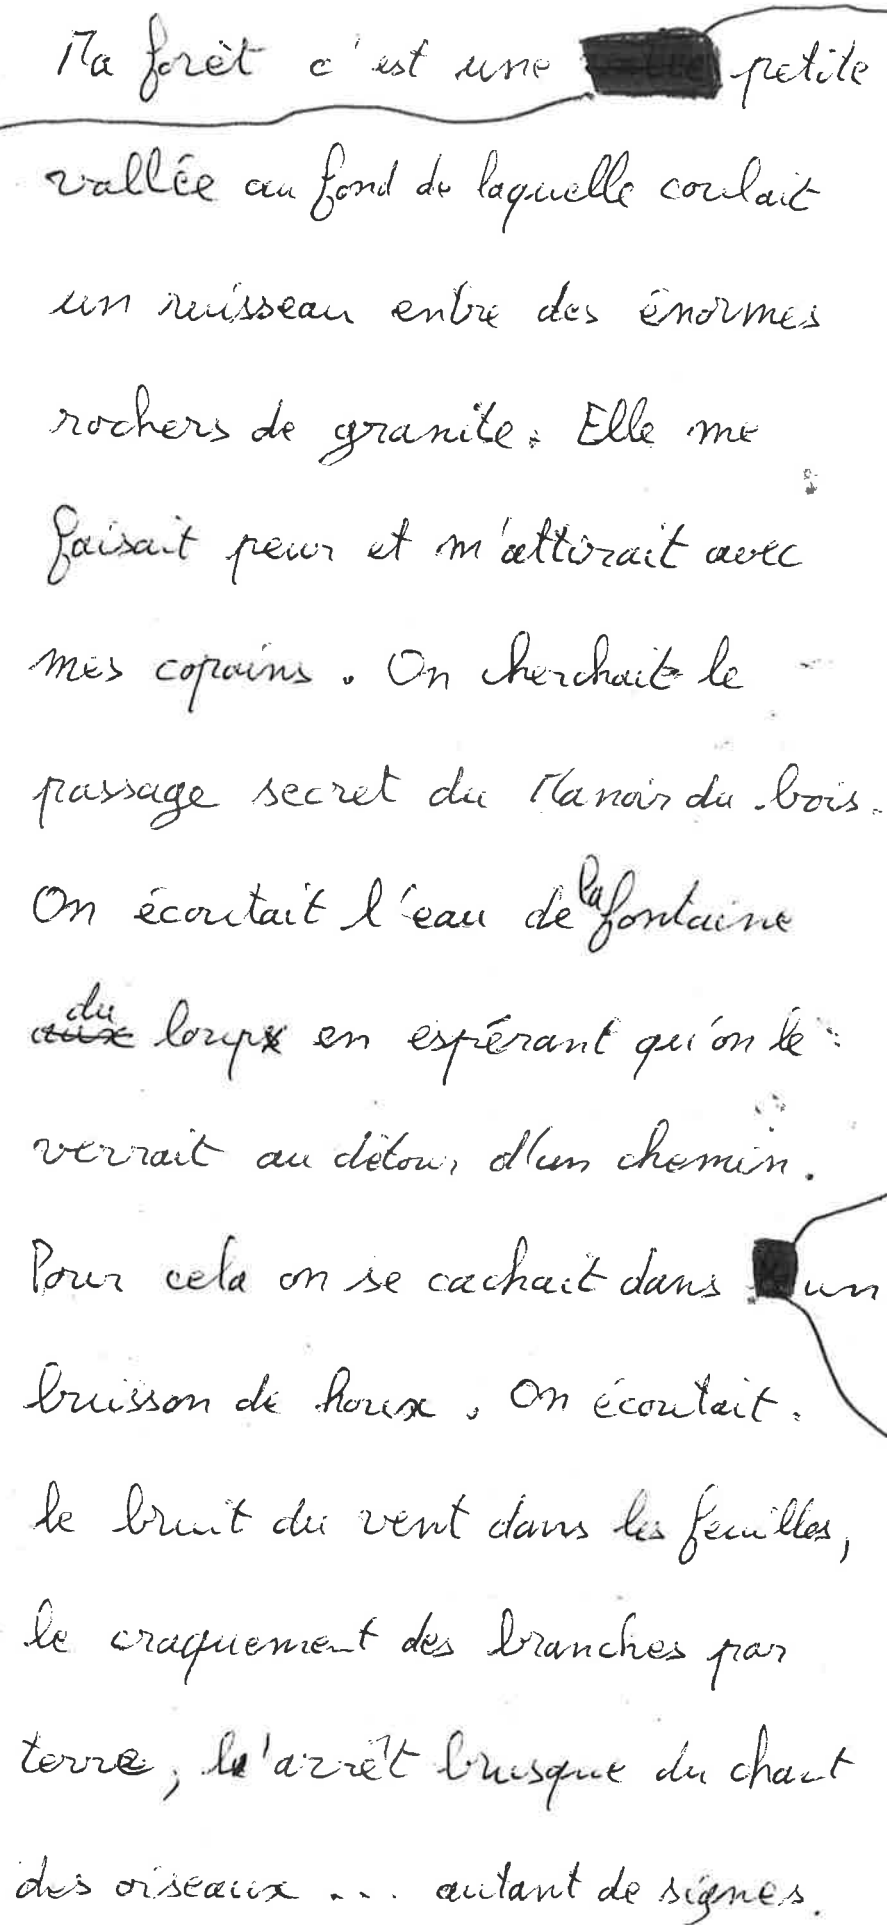 Ma forêt c'est une petite
vallée au fond de laquelle coulait
un ruisseau entre des énormes
rochers de granite. Elle me
faisait peur et m'attirait avec
mes copains. On cherchait le
passage secret du Manoir du bois.
On écoutait l'eau de la fontaine
du loup en espérant qu'on le
verrait au détour d'un chemin.
Pour cela on se cachait dans un
buisson de houx. On écoutait
le bruit du vent dans les feuilles,
le craquement des branches par
terre, l'arrêt brusque du chant
des oiseaux ... autant de signes.